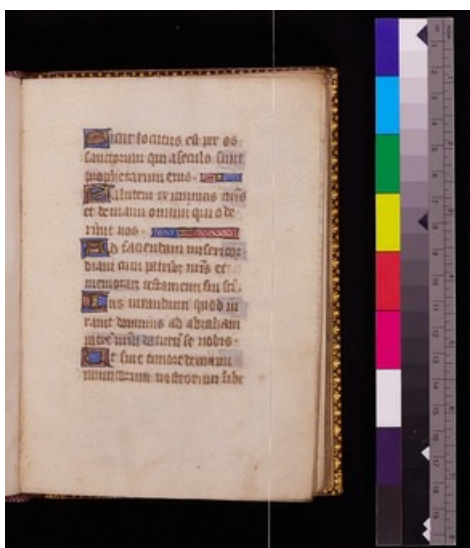 Sicut locutus est per os
sanctorum qui a seculo sunt
prophetarum eius
Salutem ex inimicis nr̄is
et de manu omnium qui ode
runt nos
Ad faciendam misericor
diam cum patribꝫ nr̄is et
memorari testamenti sui sc̄i
Ius iurandum quod iu
rauit dominus ad abraham
patrē nr̄m daturū se nobis
Ut sine timore de manu
inimicorum nostrorum libe